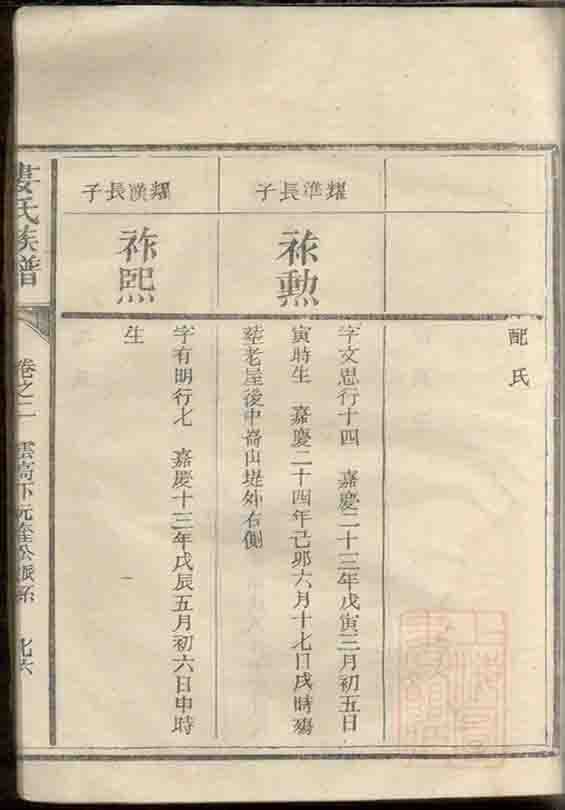 配氏
耀準長子
祢勲
字文思行十四 嘉慶二十三年戊寅三月初五日
寅時生 嘉慶二十四年己卯六月十七日戌時殤
塟老屋後中嵜山堤外右側
耀漢長子
祚熙
字有明行七 嘉慶十三年戊辰五月初六日申時
生
婁氏族譜
卷之二